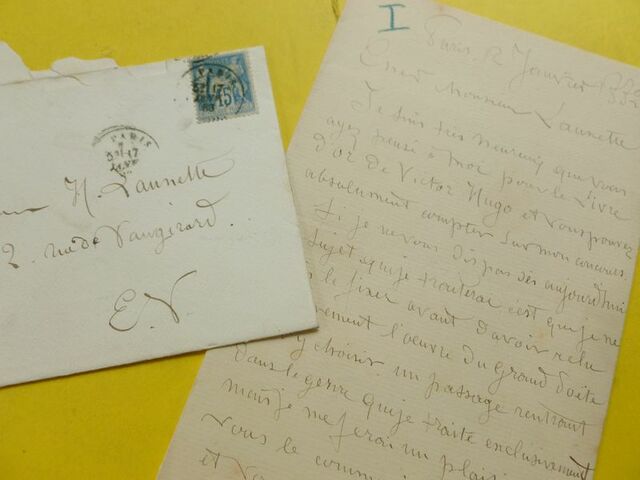 PARIS
15
PARIS
H. Launette
2. rue de Vaugirard.
E.V.
I
Paris 2 Janvier
Cher Monsieur Launette
Je suis très heureux que vous
ayez pensé à moi pour le Livre
d'or de Victor Hugo et vous pouvez
absolument compter sur mon concours
Si je ne vous dis pas dès aujourd'hui
sujet que je traiterai c'est que je ne
le fixer avant d'avoir relu
l'oeuvre du Grand Poète
y choisir un passage rentrant
dans le genre que je traite exclusivement
mais je me ferai un
vous le
et